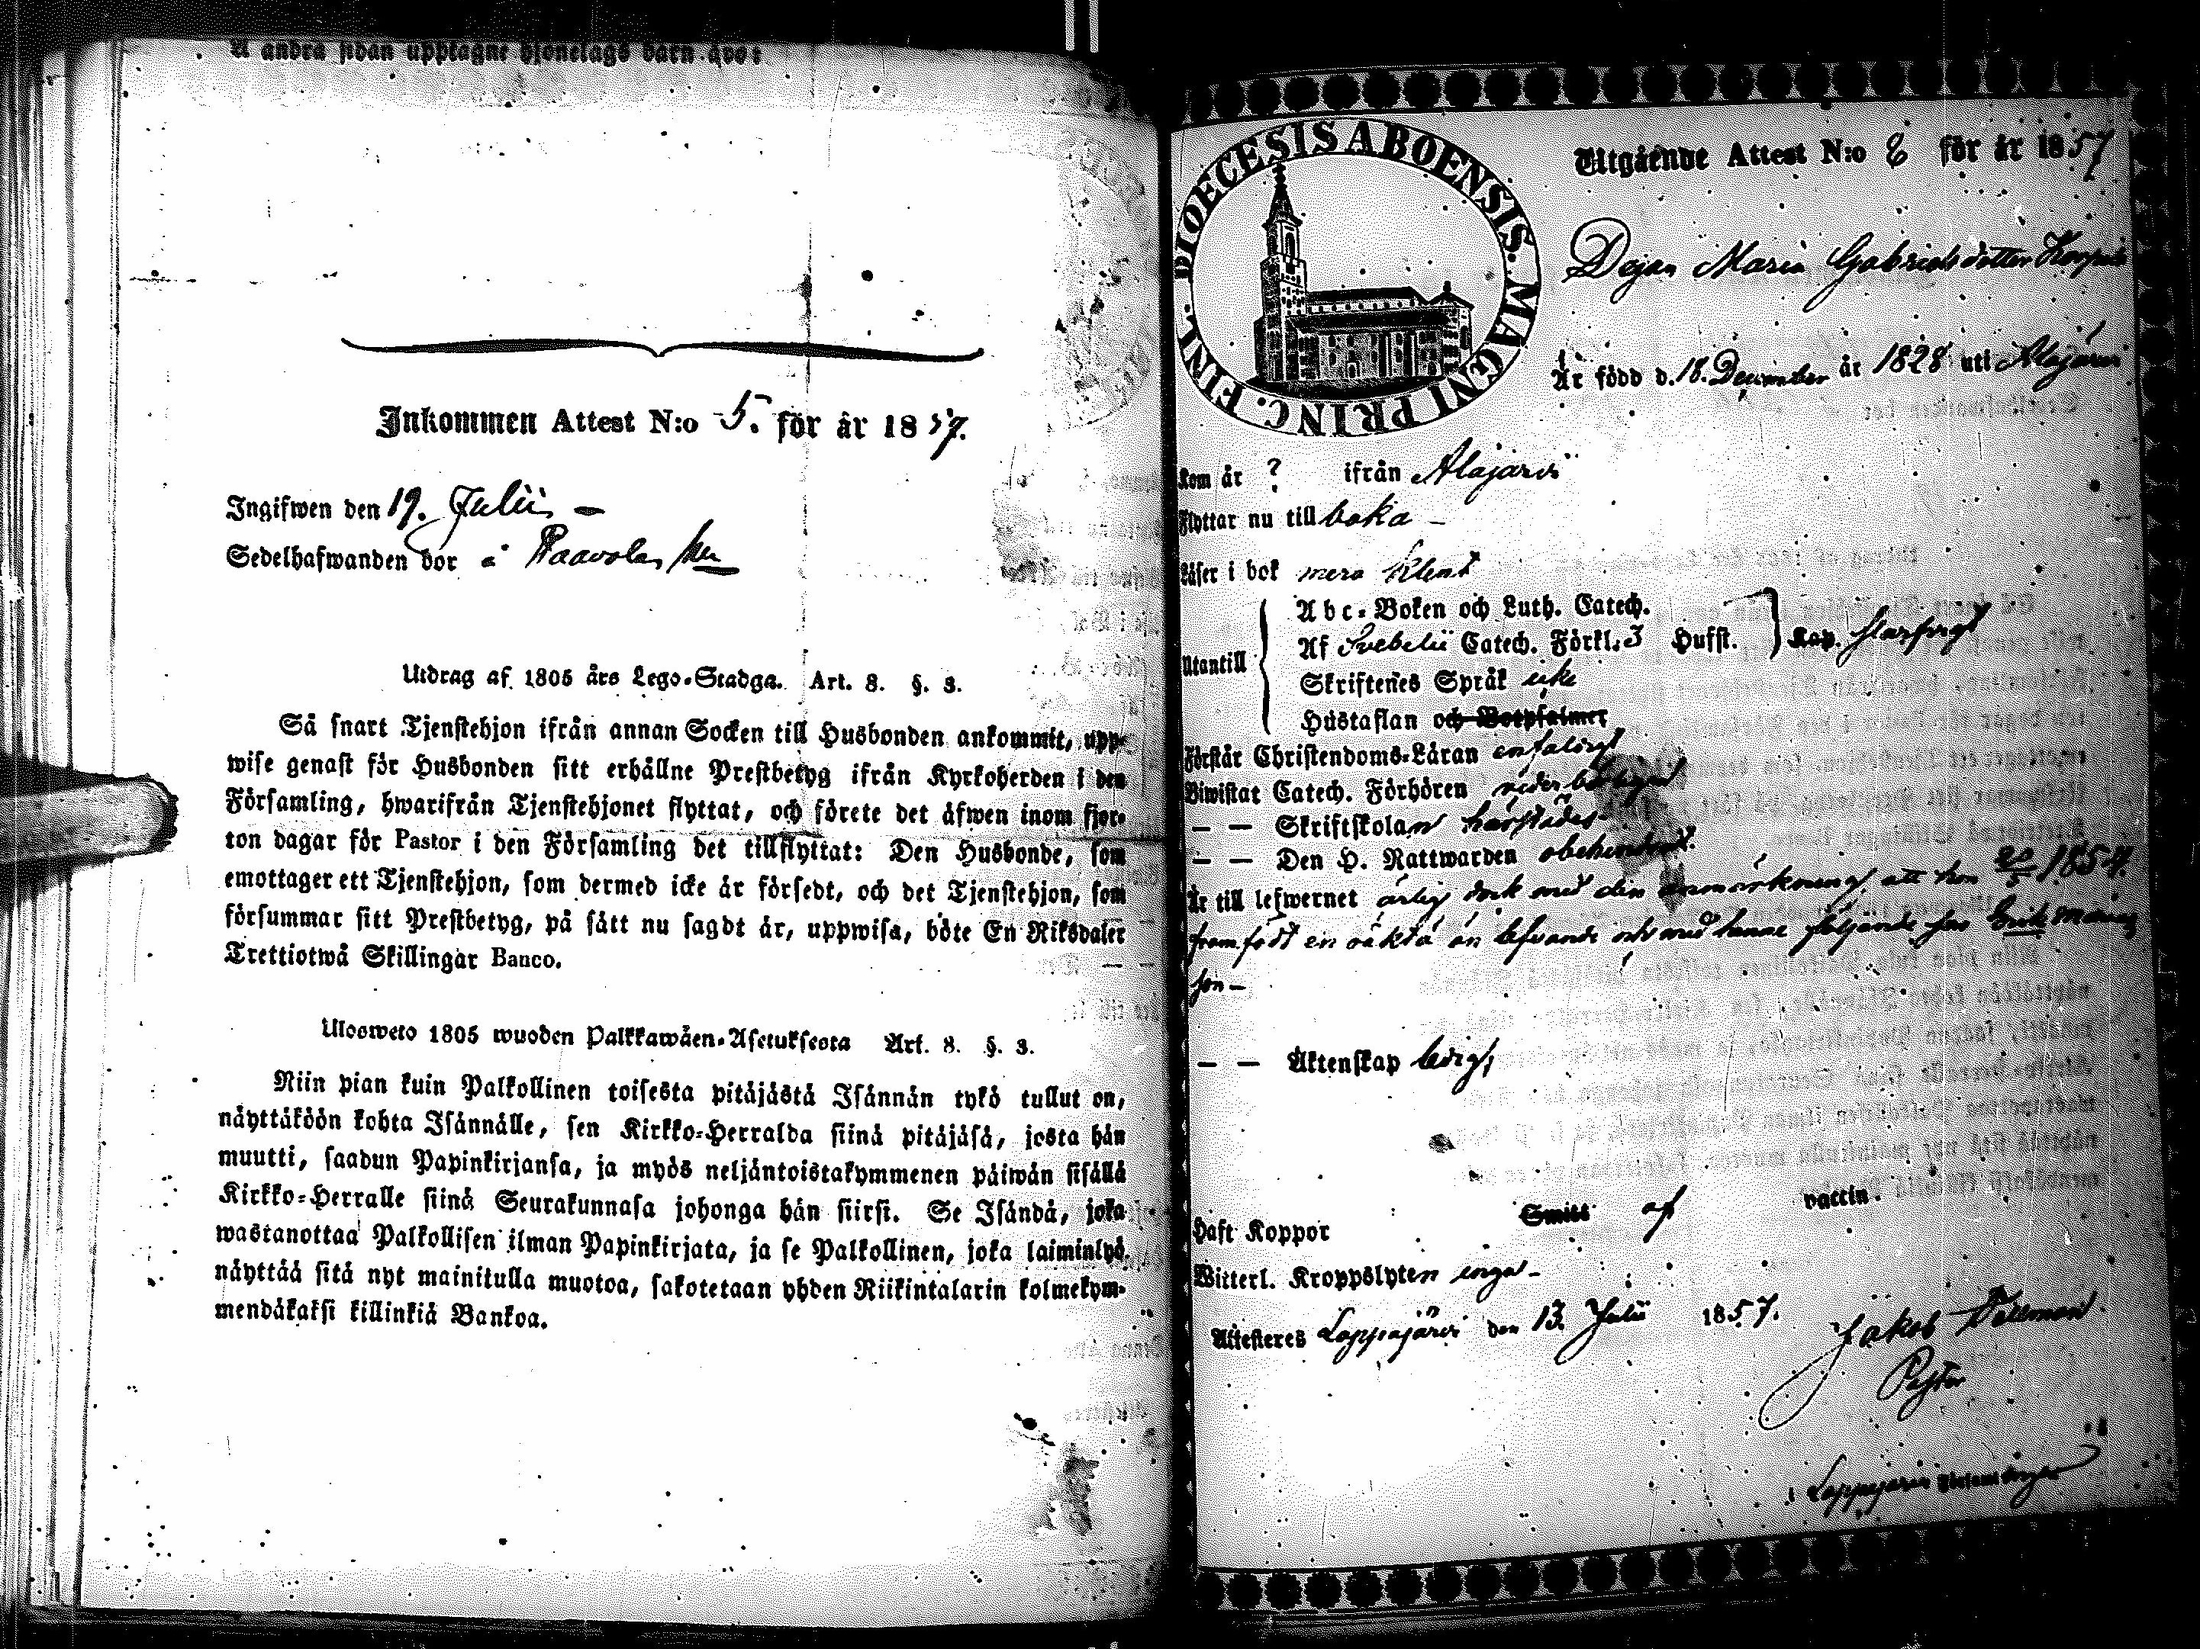 å andra sidan upptagne hjonelags barn äro:
Inkommen Attest N:o 5. för år 1857.
Ingifwen den 19. Julii –
Sedelhafwanden bor å Paavola
Utdrag af 1805 års Lego-Stadga. Art. 8. §. 3.
Så snart Tjenstehjon ifrån annan Socken till Husbonden ankommit, upp-
wise genast för Husbonden sitt erhållne Prestbetyg ifrån Kyrkoherden i den
Församling, hwarifrån Tjenstehjonet flyttat, och förete det äfwen inom fjor-
ton dagar för Pastor i den Församling det tillflyttat: Den Husbonde, som
emottager ett Tjenstehjon, som dermed icke är försedt, och det Tjenstehjon, som
försummar sitt Prestbetyg, på sätt nu sagdt är, uppwisa, böte En Riksdaler
Trettiotwå Skillingar Banco.
Ulosweto 1805 wuoden Palkkawäen-Asetuksesta Art. 8. §. 3.
Niin pian kuin Palkollinen toisesta pitäjästä Isännän tykö tullut on,
näyttäköön kohta Isännälle, sen Kirkko-Herralda siinä pitäjäsä, josta hän
muutti, saadun Papinkirjansa, ja myös neljäntoistakymmenen päiwän sisällä
Kirkko-Herralle siinä Seurakunnasa johonga hän siirsi. Se Isändä, joka
wastanottaa Palkollisen ilman Papinkirjata, ja se Palkollinen, joka laiminlyö
näyttää sitä nyt mainitulla muotoa, sakotetaan yhden Riikintalarin kolmekym-
mendäkaksi killinkiä Bankoa.
DIOECESIS ABOENSIS. MAGNI PRINC. FINL.
Utgående Attest N:o 8 för år 1857
Dejan Maria Gabrielsdotter
Är född d. 18. December år 1828 uti Alajärvi
Kom år ? ifrån Alajärvi
Flyttar nu till
Läser i bok mera klent
Utantill
Abc-Boken och Luth. Catech.
Af Svebelii Catech. Förkl. 3 Hufst.
Skriftenes Språk
Hustaflan och Botpsalmer
Förstår Christendoms-Läran enfaldigt
Biwistat Catech. Förhören
— — Skriftskolan härstädes
— — Den H. Nattwarden obehindrad.
Är till lefwernet ärlig dock med den anmärkning, att hon 20/5 1854.
framfödt en oäkta än lefvande och med henne följande son Erik
son –
— — Äktenskap ledig,
Haft Koppor Smitt af vaccin.
Witterl. Kroppslyten inga –
Attesteres Lappajärvi den 13. Julii 1857.
Jakob
Pastor
Lappajärvi